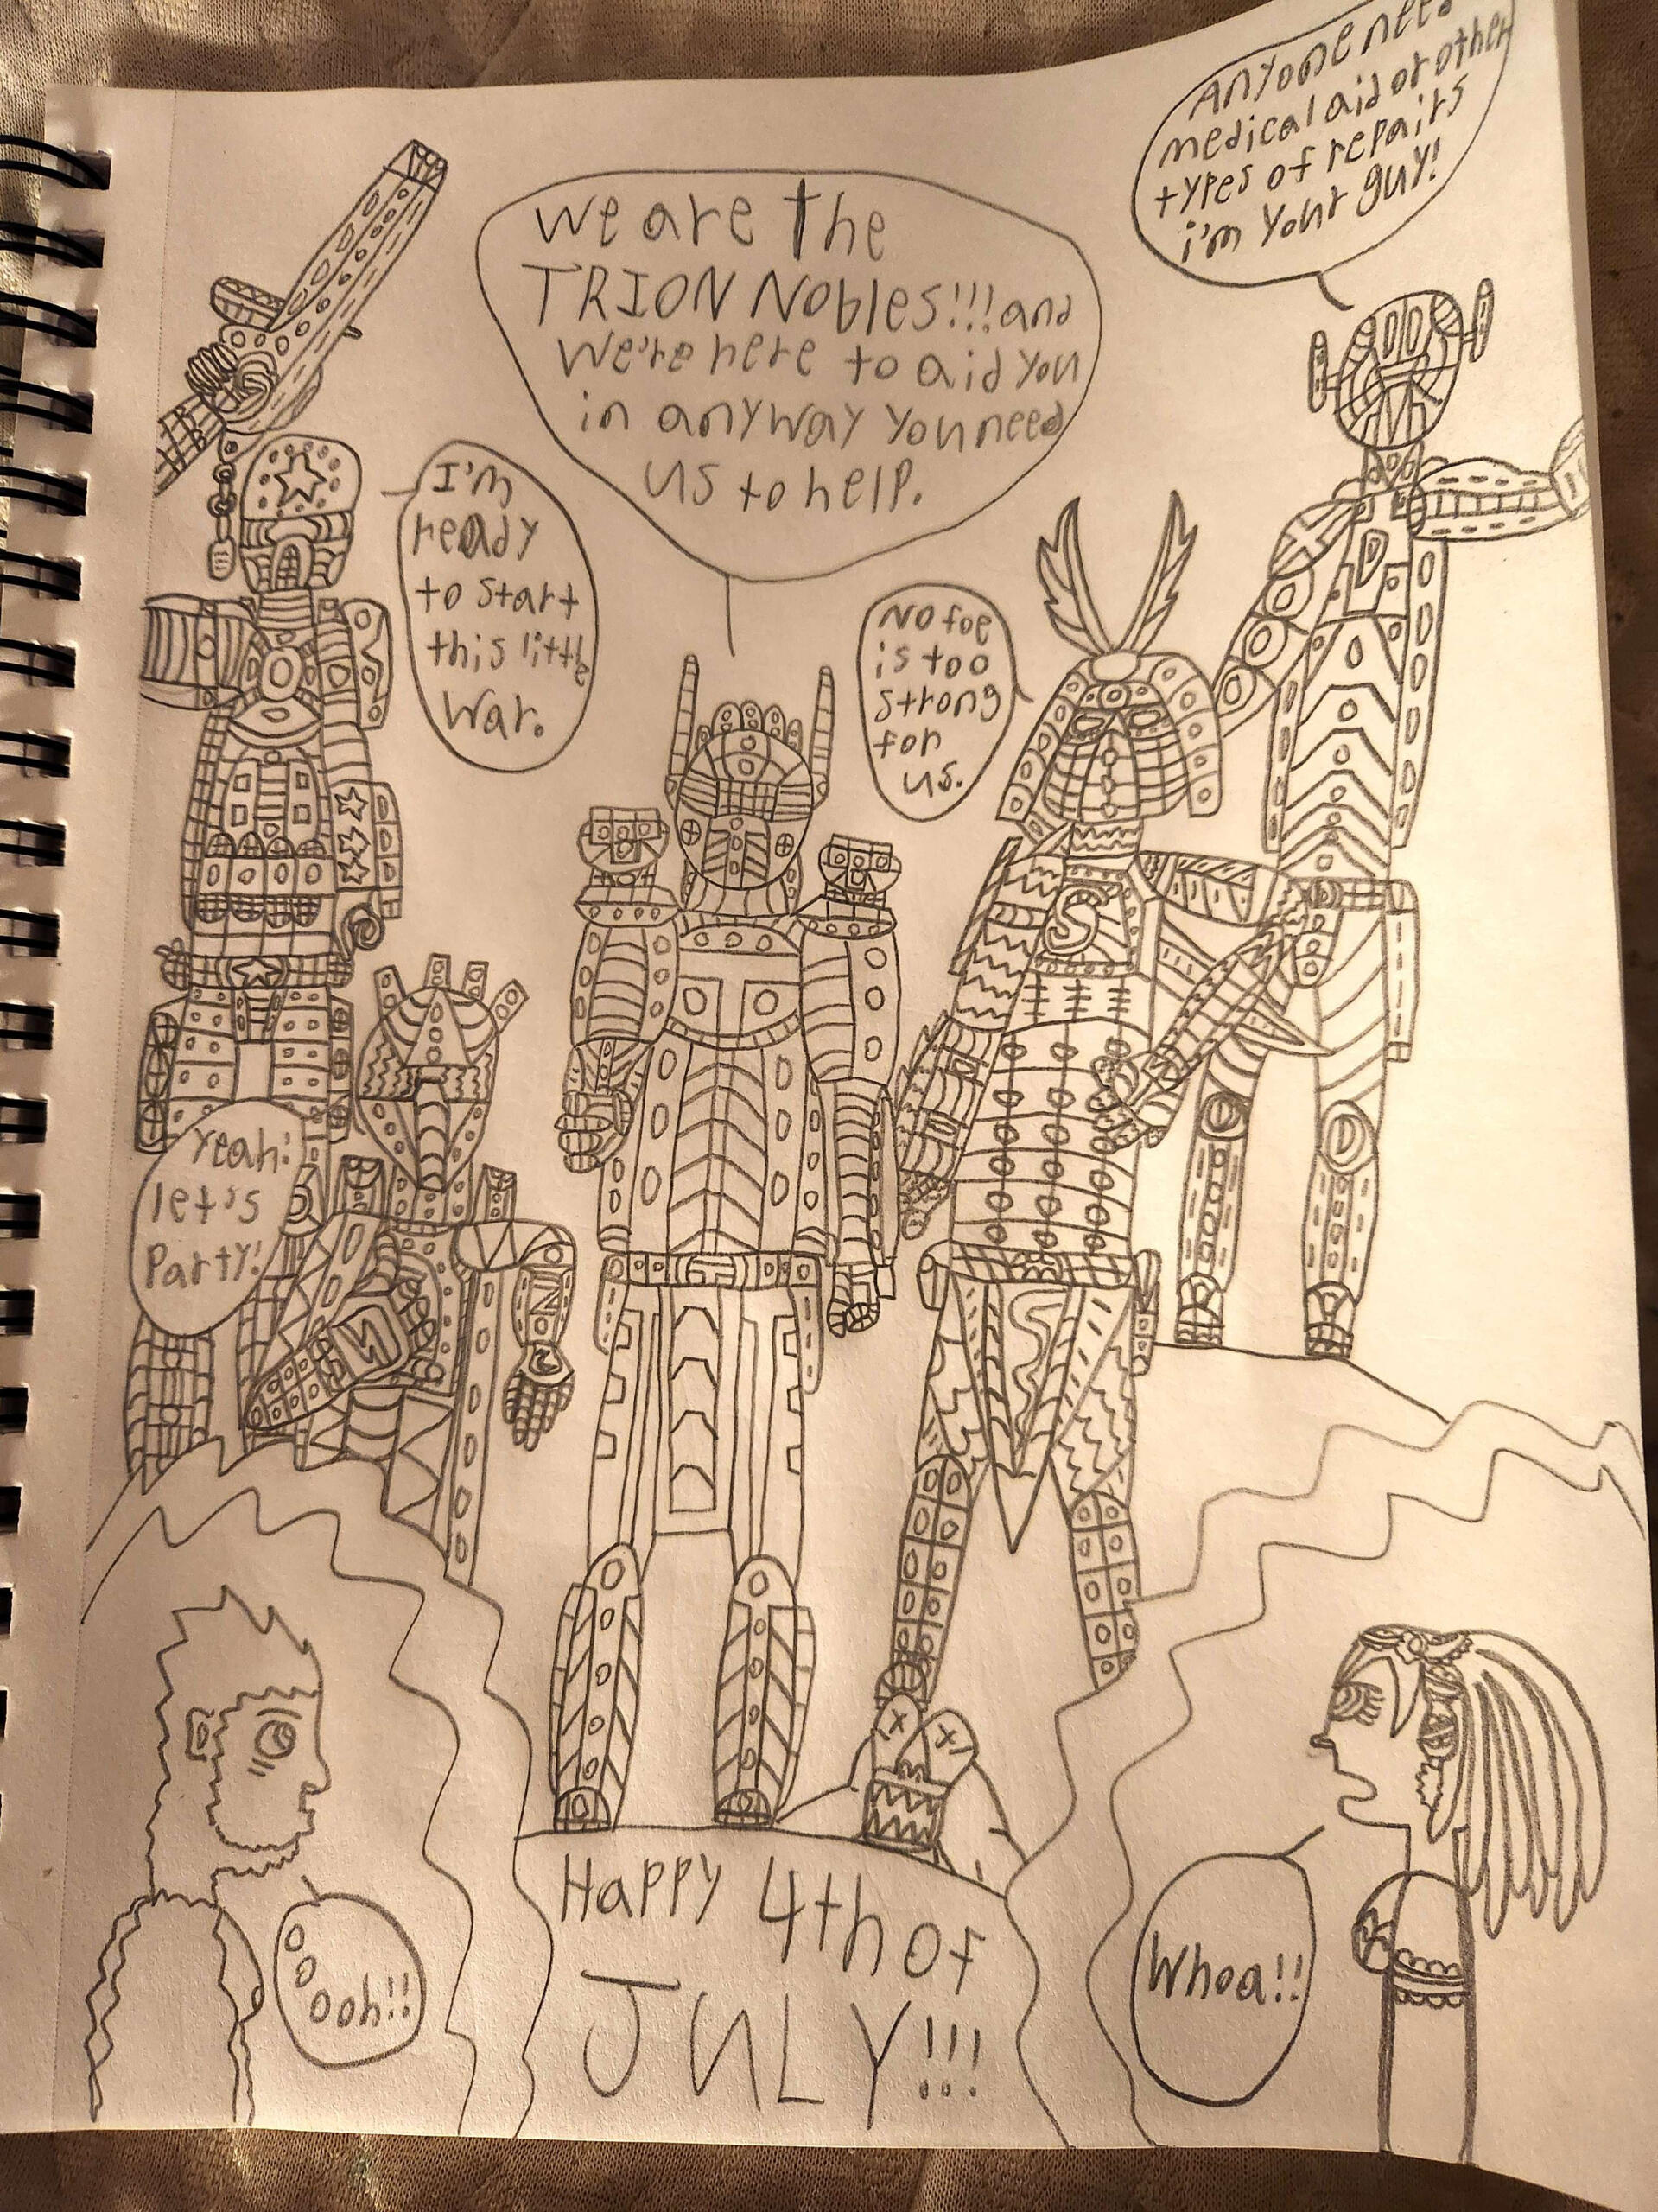 Anyone need
medical aid or other
types of repairs
i'm your guy!
We are the
TRION Nobles!!! and
We're here to aid you
in anyway you need
us to help.
I'm
ready
to start
this little
War.
No foe
is too
strong
for
us.
S
Yeah!
let's
Party!
N
N
S
O
o
ooh!!
Whoa!!
Happy 4th of
JULY!!!